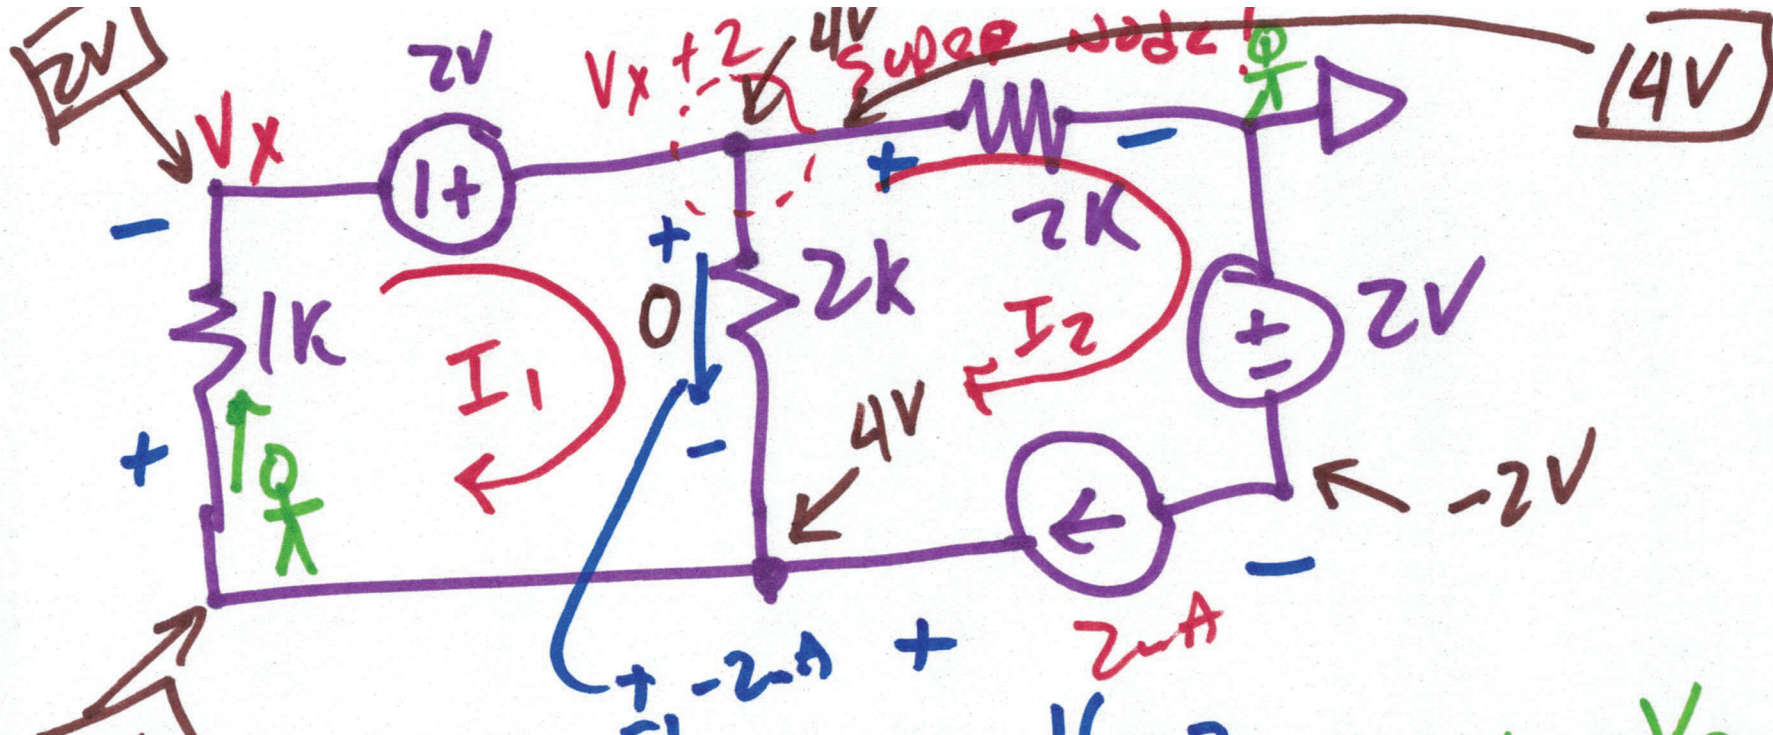 2V
2V
Vx + 2
4V
Super Node!
14V
Vx
1+
2K
2K
1K
I1
0
I2
+
=
2V
4V
-2V
+ -2mA
+
2mA